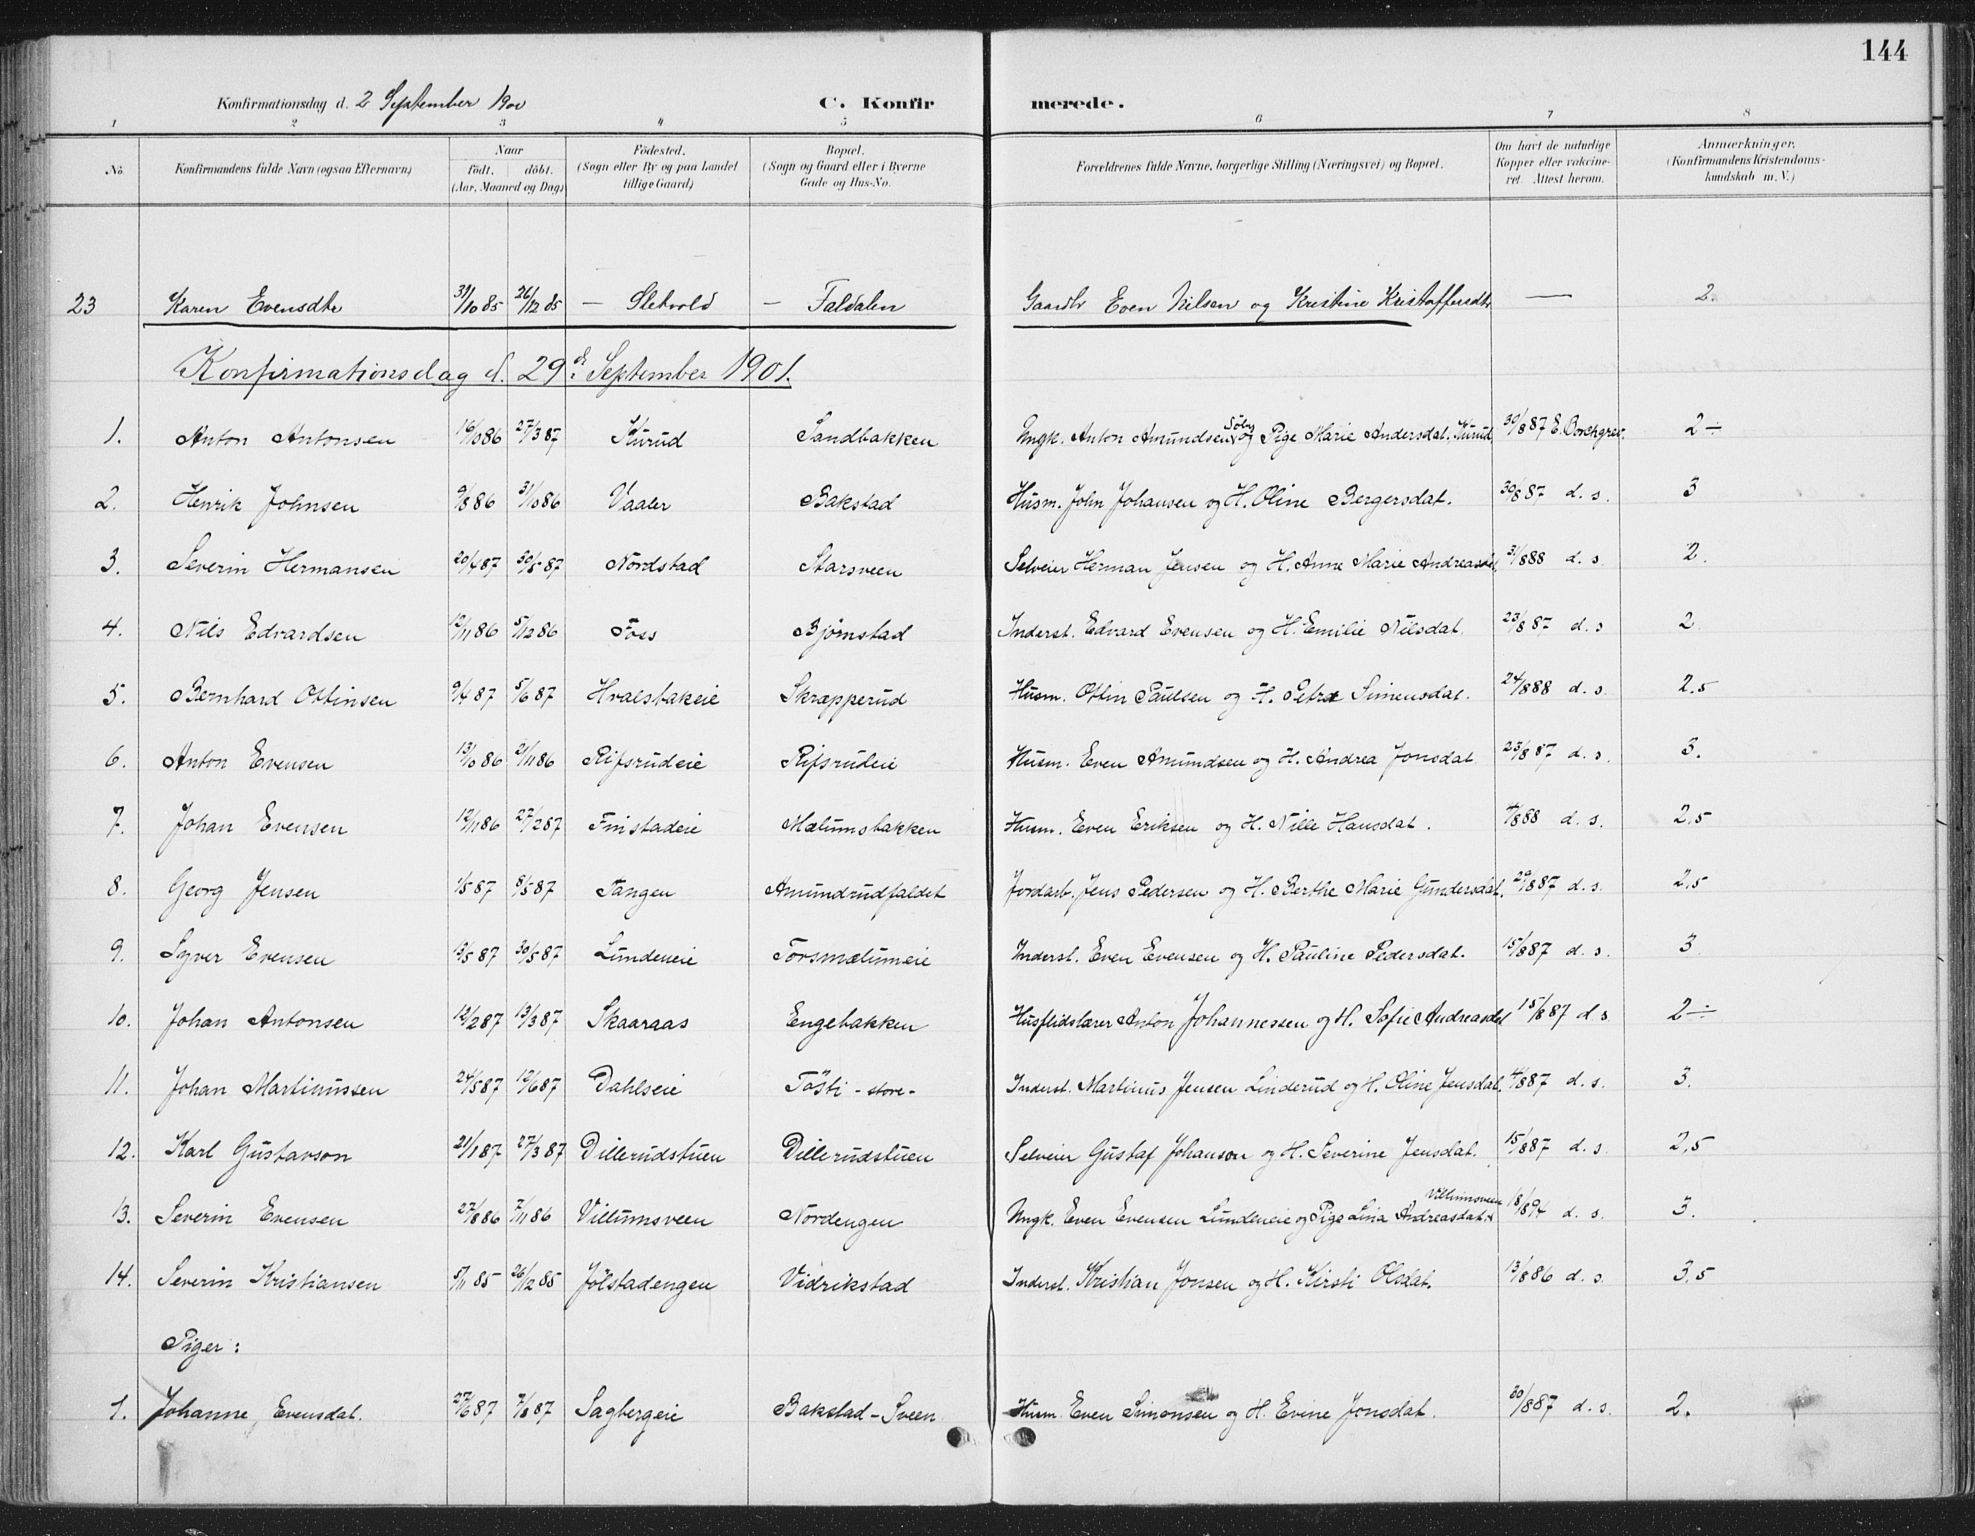 144
Konfirmationsdag d. 2 September 1900 C. Konfirmerede.
1 2 3 4 5 6 7 8
No. Konfirmandens fulde Navn (ogsaa Efternavn) Naar födt. döbt. (Aar, Maaned og Dag) Födested. (Sogn eller By og paa Landet tillige Gaard) Bopæl. (Sogn og Gaard eller i Byerne Gade og Hus-No. Forældrenes fulde Navne, borgerlige Stilling (Næringsvei) og Bopæl. Om havt de naturlige Kopper eller vaccineret. Attest herom. Anmærkninger. (Konfirmandens Kristendomskundskab m. V.)
23 Karen Evensdtr 31/10 85 26/12 85 — Sletvold — Faldalen Gaardbr Even Nilsen og Kristine Kristoffersdtr — 2.
Konfirmationsdag d. 29de September 1901.
1. Anton Antonsen 16/10 86 27/3 87 Kurud Sandbakken Ungk. Anton Amundsen Söby og Pige Marie Andersdat. Kurud 30/8 87 E. Borchgrev. 2 ÷
2. Henrik Johnsen 9/8 86 31/10 86 Vaaler Bakstad Husm. John Johansen og H. Oline Bergersdat. 30/8 87 d. s. 3
3. Severin Hermansen 20/4 87 30/5 87 Nordstad Starsveen Selveier Herman Jensen og H. Anne Marie Andreasdat. 31/8 88 d. s. 2.
4. Nils Edvardsen 12/11 86 5/12 86 Foss Bjørnstad Inderst. Edvard Evensen og H. Emilie Nilsdat. 23/8 87 d. s 2
5. Bernhard Ottinsen 9/4 87 5/6 87 Hvalsbakeie Skræpperud Husm. Ottin Paulsen og H. Petra Simensdat. 24/8 88 d. s. 2.5
6. Anton Evensen 13/10 86 21/11 86 Rifsrudeie Rifsrudeie Husm. Even Amundsen og H. Andrea Jonsdat 23/8 87 d. s. 3.
7. Johan Evensen 12/11 86 27/2 87 Finstadeie Mælumsbakken Husm. Even Eriksen og H. Nille Hansdat. 4/8 88 d. s. 2,5
8. Georg Jensen 1/5 87 8/5 87 Tangen Amundrudfaldet Jordarb. Jens Pedersen og H. Berthe Marie Gundersdat. 29/8 87 d. s. 2,5
9. Syver Evensen 13/5 87 30/5 87 Lundeneie Torsmælumeie Inderst. Even Evensen og H. Pauline Pedersdat. 15/8 87 d. s. 3
10. Johan Antonsen 12/2 87 13/3 87 Skaaraas Engebakken Husflidslærer Anton Johannessen og H. Sofie Andreasdat 15/8 87 d. s 2 ÷
11. Johan Martinussen 24/5 87 12/6 87 Dahlseie Tösti - store - Inderst. Martinus Jensen Linderud og H. Oline Jensdat. 4/8 87 d. s. 3.
12. Karl Gustavson 21/1 87 27/3 87 Dillerudstuen Dillerudstuen Selveier Gustaf Johanson og H. Severine Jensdat. 15/8 87 d. s. 2,5
13. Severin Evensen 27/8 86 7/11 86 Villumsveen Nordengen Ungk. Even Evensen Lundeneie og Pige Lina Andreasdat. Villumsveen 18/8 94 d. s. 3.
14. Severin Kristiansen 5/11 85 26/12 85 Jölstadengen Vidrikstad Inderst. Kristian Jonsen og H. Kirsti Olsdat. 13/8 86 d. s. 3.5
Piger:
1. Johanne Evensdat. 27/6 87 7/8 87 Sagbergeie Bakstad-Sveen Husm Even Simonsen og H. Evine Jonsdat. 30/8 87 d. s. 2.